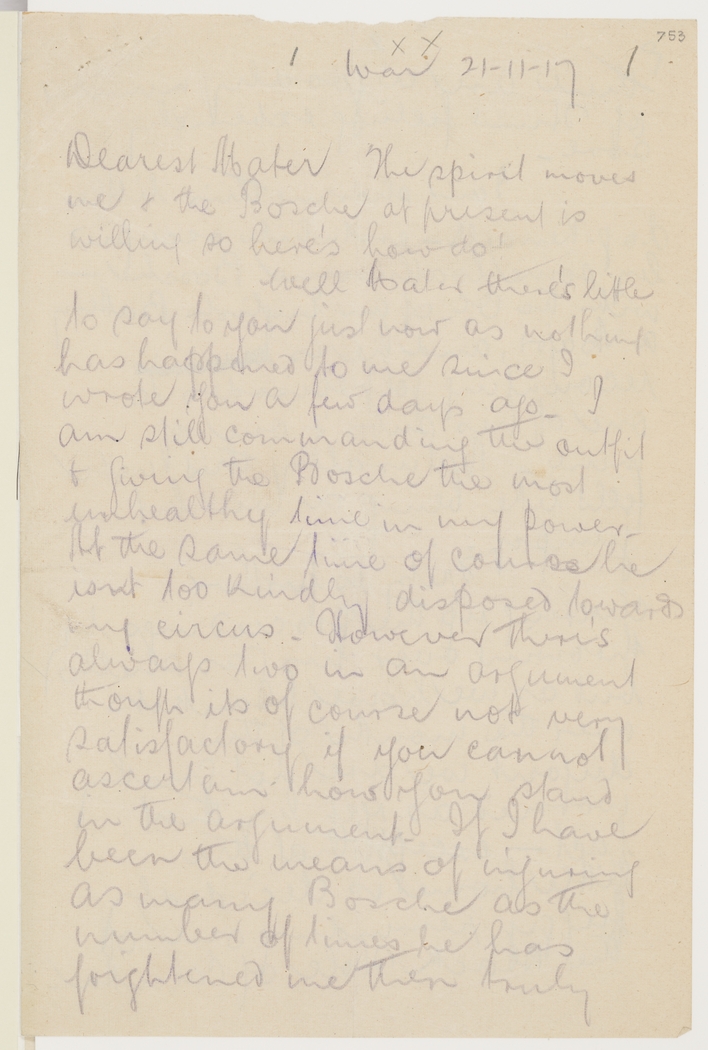 753
x x
War 21-11-17
Dearest Mater The spirit moves
me & the Bosche at present is
willing so here's how-do!
Well Mater there's little
to say to you just now as nothing
has happened to me since I
wrote you a few days ago - I
am still commanding the outfit
& giving the Bosche the most
unhealthy time in my power -
At the same time of course he
isnt too kindly disposed towards
my circus - However there's
always two in an argument
though its of course not very
satisfactory if you cannot
ascertain how you stand
in the argument - If I have
been the means of injuring
as many Bosche as the
number of times he has
frightened me then truly